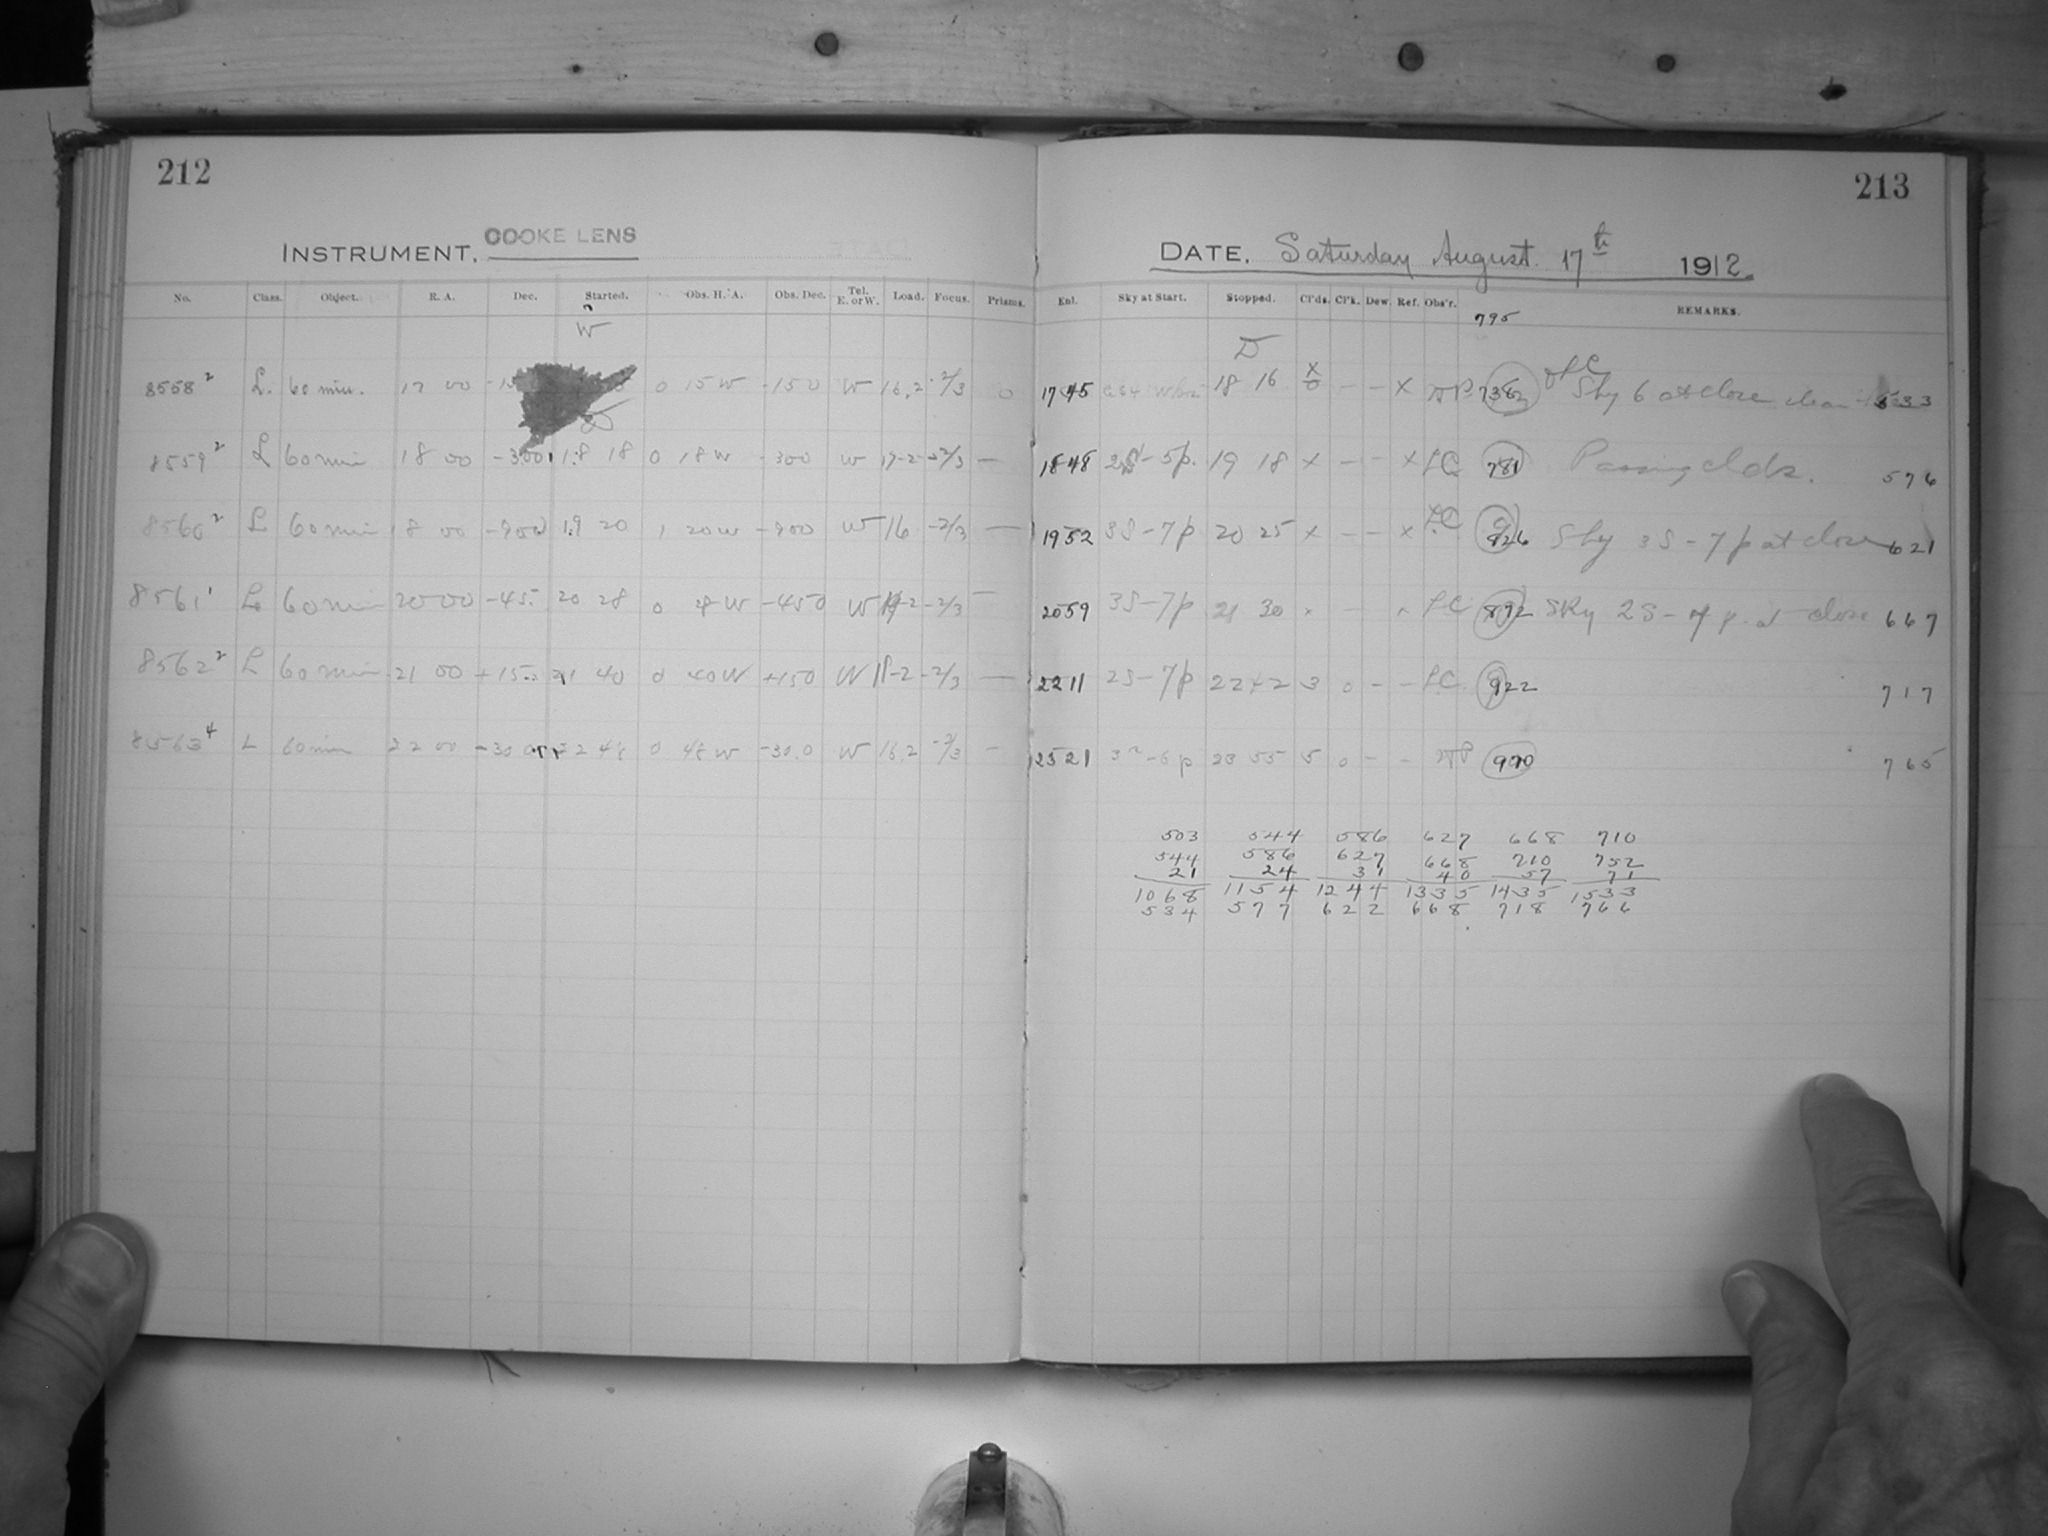 212
213
INSTRUMENT, COOKE LENS
DATE, Saturday August 17th 1912.
No. Class. Object. R. A. Dec. Started. Obs. H. A. Obs. Dec. Tel. E. or W. Load. Focus. Prisms.
Enl. Sky at Start. Stopped. Cl'ds. Cl'k. Dew. Ref. Obs'r. REMARKS.
795
W
D
8558² L. 60 min. 17 00 0 15 W -150 W 16.2 -2/3 0 1745 18 16 x/0 - - x Sky 6 at close 533
8559² L 60 min 18 00 -300 18 18 0 18 W -300 W 17-2 -2/3 — 1848 2S-5p. 19 18 x - - x LC 781 Passing clds. 576
8560² L 60 min 18 00 -900 19 20 1 20 W -900 W 16 -2/3 — 1952 3S-7p 20 25 x - - x LC 826 Sky 3S-7p at close 621
8561¹ L 60 min 20 00 -45 20 28 0 28 W -450 W -2 -2/3 — 2059 3S-7p 21 30 x - x LC 872 Sky 2S-7p at close 667
8562² L 60 min 21 00 +15 21 40 0 40 W +150 W 18-2 -2/3 — 2211 2S-7p 22 42 3 0 - - LC 922 717
8563⁴ L 60 min 22 00 -30 0 22 48 0 48 W -30.0 W 16.2 -2/3 - 2321 -6p 23 55 5 0 - - 970 765
503 544 586 627 668 710
544 586 627 668 710 752
21 24 31 40 57 71
1068 1154 1244 1335 1435 1533
534 577 622 668 718 766